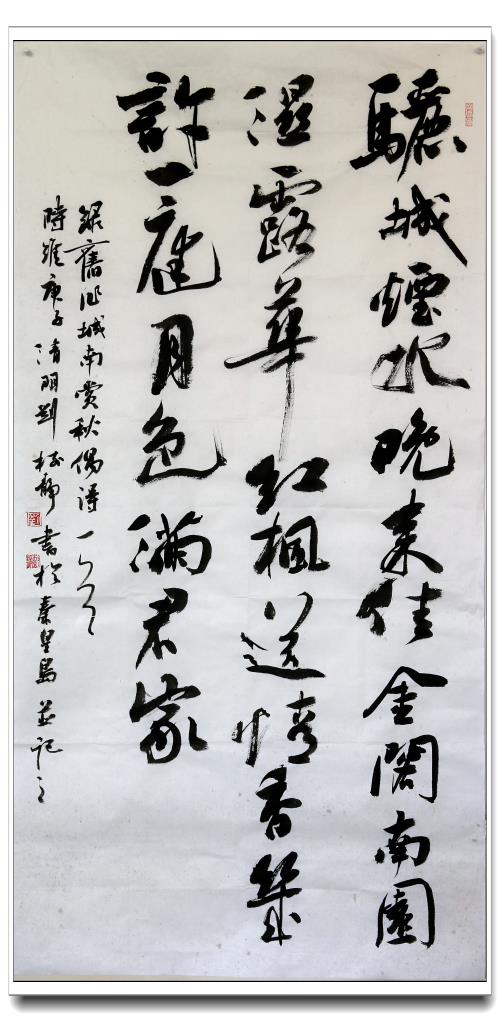 驪城煙水晚来佳金闕南園
濕露華红楓送情香幾
許一庭月色满君家
錄舊作城南赏秋偶得一首
時維庚子清明劉 静書於秦皇島並記之